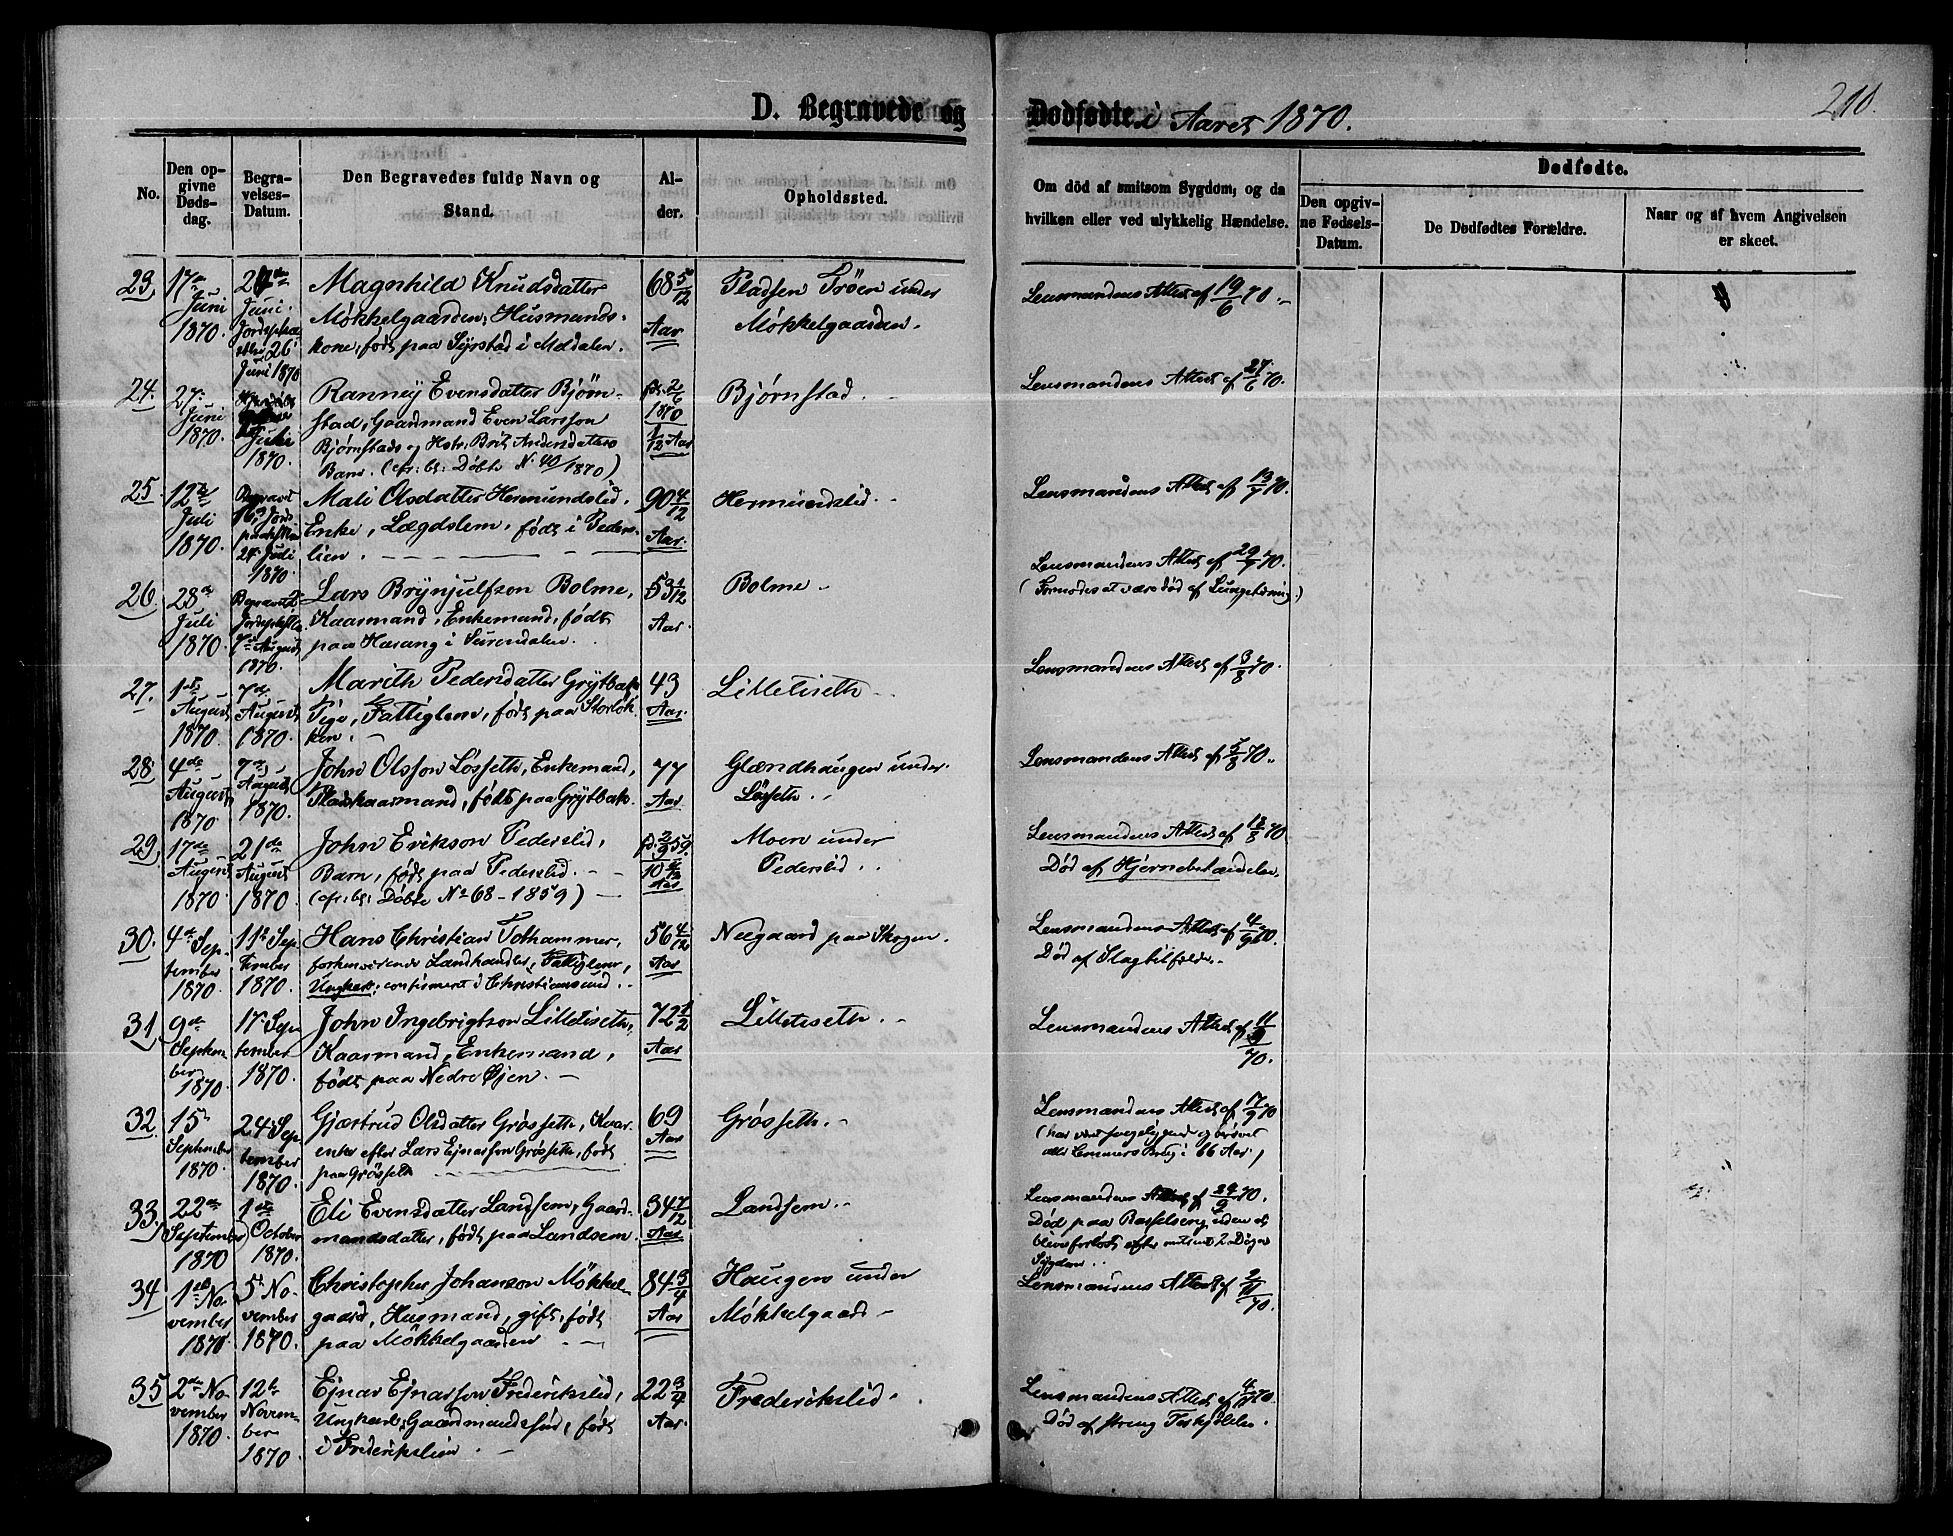 D. Begravede og Dødfødte i Aaret 1870.
210.
No.
Den opgivne Dødsdag.
Begravelses-Datum.
Den Begravedes fulde Navn og Stand.
Alder.
Opholdssted.
Om död af smitsom Sygdom, og da hvilken eller ved ulykkelig Hændelse.
Dødfødte.
Den opgivne Fødsels-Datum.
De Dødfødtes Forældre.
Naar og af hvem Angivelsen er skeet.
23, 17de Juni 1870. Juni. 26 Juni 1870
Magnhild Knudsdatter
Møkkelgaarden, Husmands-
kone, født paa Syrstad i Meldalen.
68 5/12 Aar
Pladsen Trøen under
Møkkelgaarden.
Lensmandens Attest af 19/6 70.
24. 27. Juni 1870. Juli 1870.
Ranney Evensdatter Bjørn-
stad, Gaardmand Even Larsson
Bjørnstads og Hstr. Brit Andersdatters
Barn. (cfr. bl. Døbte No 40/1870)
f. 2/6 1870 1/12 Aar
Bjørnstad.
Lensmandens Attest af 27/6 70.
25. 12te Juli 1870. Begravet 24. Juli 1870.
Mali Olsdatter Hermundslid,
Enke, Lægdslem, født i Peders-
lien.
90 4/12 Aar.
Hermundslid.
Lensmandens Attest af 13/7 70.
26. 28de Juli 1870. Begravet 7de August 1870.
Lars Brynjulfson Bolme,
Kaarmand, Enkemand, født
paa Harang i Surendalen.
53 1/12 Aar.
Bolme.
Lensmandens Attest af 29/7 70.
(Formodes at være død af Lungetæring.)
27. 1ste August 1870. 7de August 1870.
Marith Pedersdatter Grytbak
Pige, Fattiglem, født paa Storløk-
ken.
43 Aar.
Lilletiseth
Lensmandens Attest af 3/8 70.
28. 4de August 1870. 7de August 1870.
John Olsson Løsseth, Enkemand,
født paa Grytbak.
77 Aar.
Glændhaugen under
Løsseth.
Lensmandens Attest af 5/8 70.
29, 17de August 1870. 21de August 1870.
John Erikson Pederslid,
Barn, født paa Pederslid.
(cfr. bl. Døbte No 68 - 1859)
f. 2/9 59.
Moen under
Pederslid.
Lensmandens Attest af 18/8 70
Død af Hjernebetændelse.
30. 4de September 1870. 11te September 1870.
Hans Christian Tolhammer,
forhenværende Landhandler, Fattiglem,
Ungkarl, confirmeret i Christiansund.
56 4/12 Aar
Neegaard paa Skogen.
Lensmandens Attest af 4/9 70.
Død af Slagtilfælde.
31, 9de September 1870. 17. September 1870.
John Ingebrigtson Lilletiseth,
Kaarmand, Enkemand,
født paa Nedre Øjen.
72 1/2 Aar
Lilletiseth.
Lensmandens Attest af 11/9 70.
32. 15de September 1870. 24. September 1870.
Gjertrud Olsdatter Grøsseth, Kaar-
enke efter Lars Ejnarson Grøsseth, født
paa Grøsseth
69 Aar
Grøsseth.
Lensmandens Attest af 17/9 70
33, 22de September 1870 1ste October 1870.
Eli Evensdatter Landsem, Gaard-
mandsdatter, født paa Landsem.
34 7/12 Aar.
Landsem.
Lensmandens Attest af 24/9 70.
Død paa Barselseng uden at
blive forløst efter omtrent 2 Døgns
Sygdom.
34. 1ste November 1870. 5te November 1870.
Christopher Johanson Møkkel-
gaard, Husmand, gift, født
paa Møkkelgaarden
84 3/4 Aar
Haugen under
Møkkelgaard
Lensmandens Attest af 2/11 70.
35 2den November 1870. 12te November 1870
Ejnar Ejnarson Frederikslid,
Ungkarl, Gaardmandssøn, født
i Frederikslien.
22 3/4 Aar.
Frederikslid.
Lensmandens Attest af 4/11 70.
Død af streng Forkjølelse.